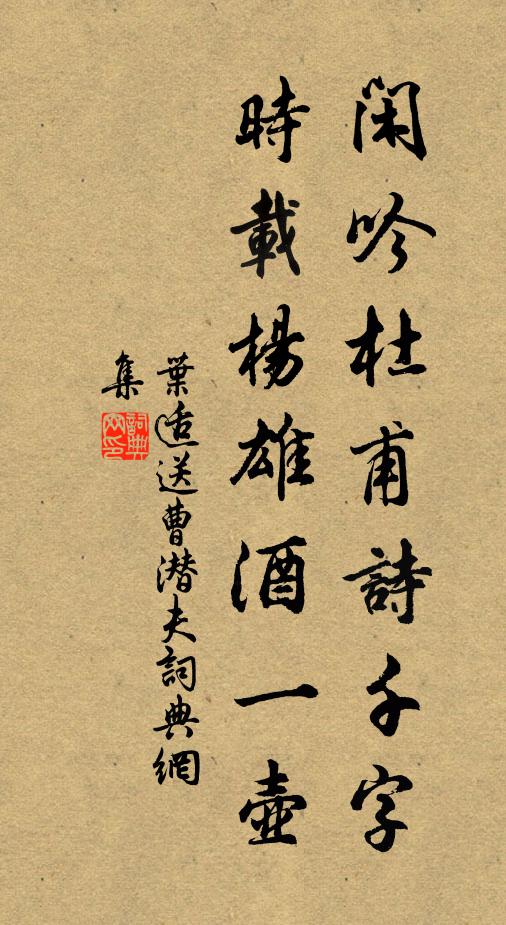 閑吟杜甫詩千字
時載楊雄酒一壺
葉適送曹潛夫詞典網
集
詞典網印